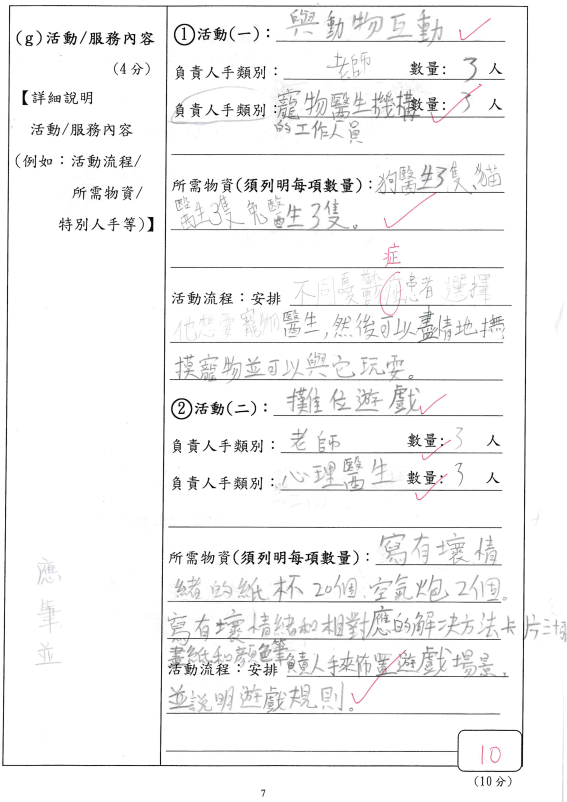 (g)活動/服務內容
(4分)
【詳細說明
活動/服務內容
(例如：活動流程/
所需物資/
特別人手等)】
①活動(一)：與動物互動
負責人手類別：老師 數量：3人
負責人手類別：寵物醫生機構的工作人員 數量：3人
所需物資(須列明每項數量)：狗醫生3隻、貓
醫生3隻兔醫生3隻。
症
活動流程：安排不同憂鬱患者選擇
他想要寵物醫生，然後可以盡情地撫
摸寵物並可以與它玩耍。
②活動(二)：攤位遊戲
負責人手類別：老師 數量：3人
負責人手類別：心理醫生 數量：3人
所需物資(須列明每項數量)：寫有壞情
緒的紙杯20個、空氣炮2個。
寫有壞情緒和相對應的解決方法卡片三十張
畫紙和顏色筆
活動流程：安排負責人手來佈置遊戲場景，
並說明遊戲規則。
應
筆
並
10
(10分)
7